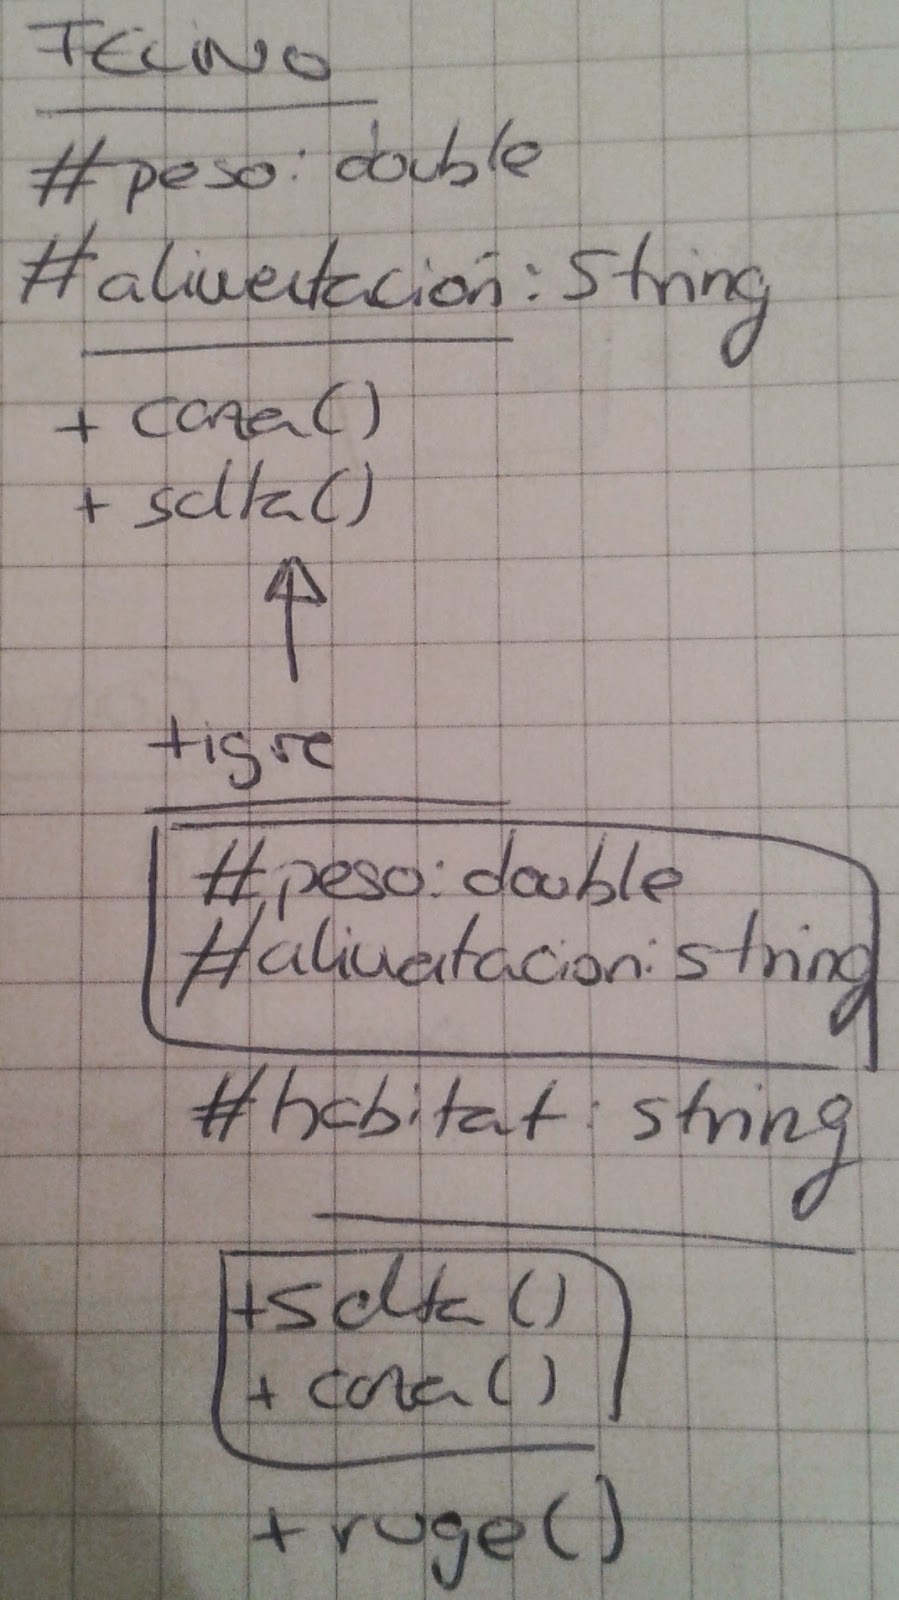 FELINO
#peso: double
#alimentación: String
+ caza()
+ salta()
tigre
#peso: double
#alimentacion: string
#habitat: string
+salta()
+ caza()
+ ruge()